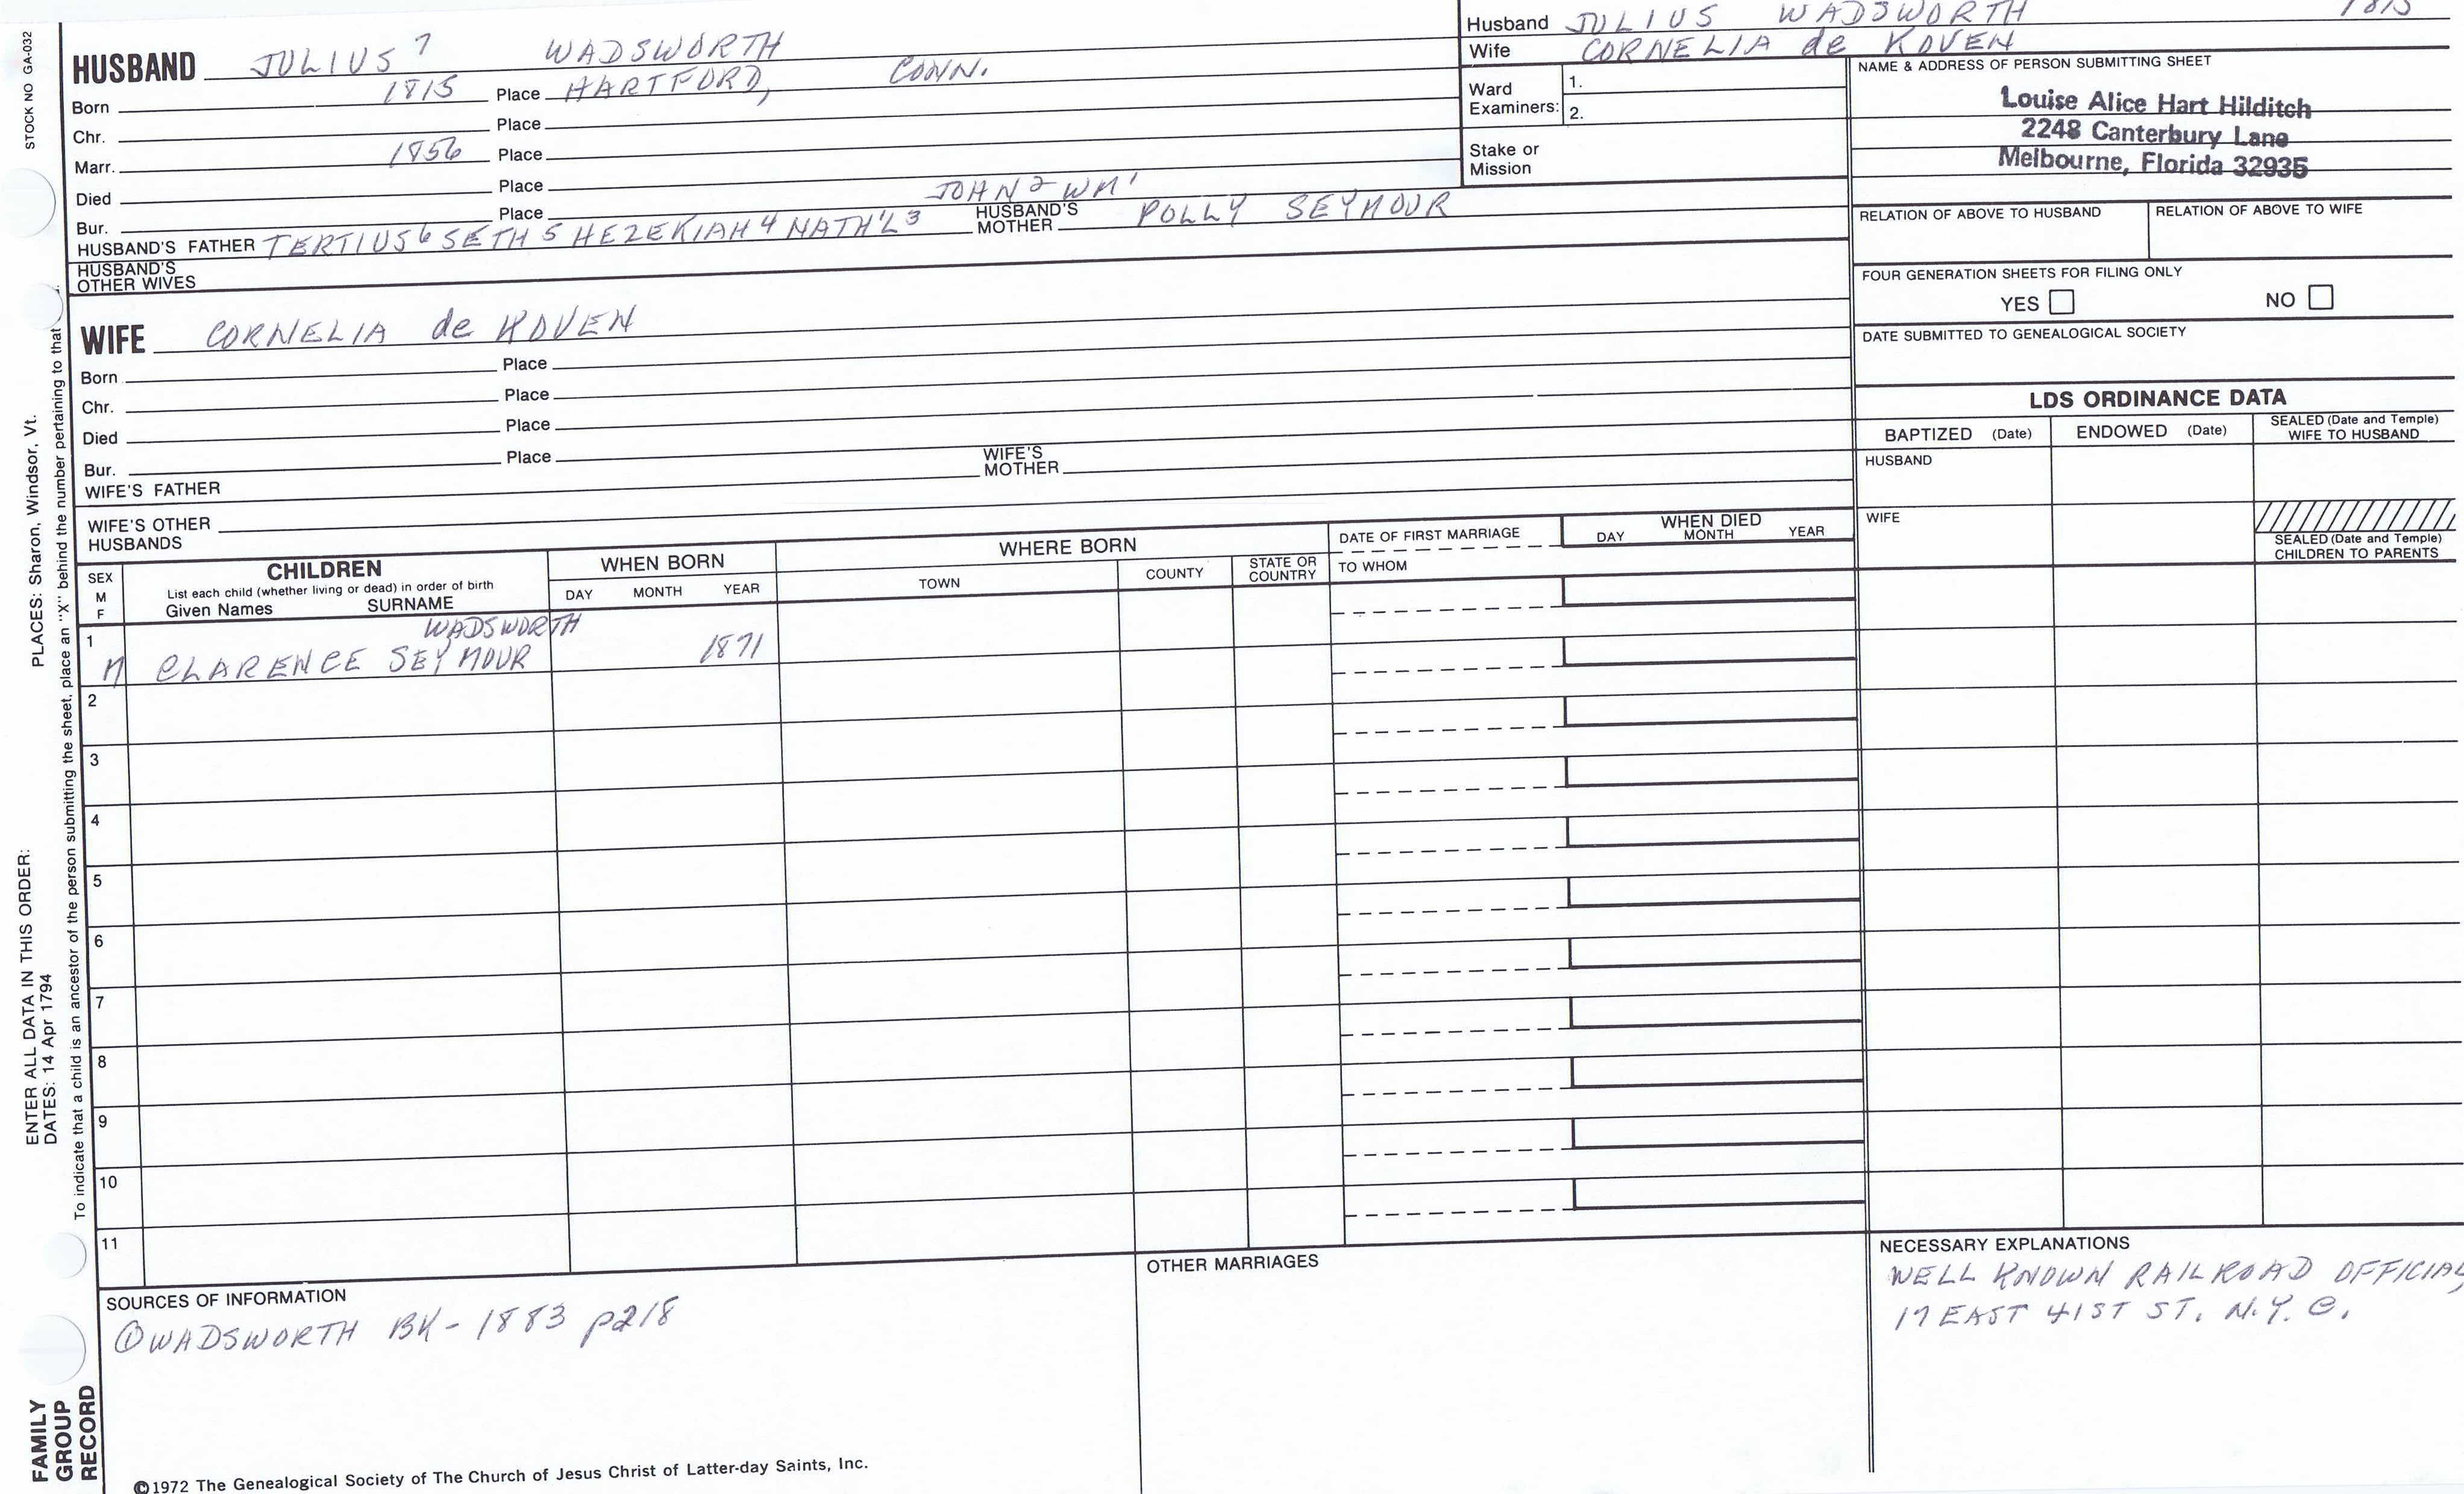 STOCK NO GA-032
HUSBAND JULIUS⁷ WADSWORTH
Born 1815 Place HARTFORD, CONN.
Chr. Place
Marr. 1856 Place
Died Place
Bur. Place
JOHN² WM¹
HUSBAND'S FATHER TERTIUS⁶ SETH⁵ HEZEKIAH⁴ NATH'L³ HUSBAND'S MOTHER POLLY SEYMOUR
HUSBAND'S OTHER WIVES
WIFE CORNELIA de KOVEN
Born Place
Chr. Place
Died Place
Bur. Place
WIFE'S FATHER WIFE'S MOTHER
WIFE'S OTHER HUSBANDS
Husband JULIUS WADSWORTH 1815
Wife CORNELIA de KOVEN
Ward Examiners: 1.
2.
Stake or Mission
NAME & ADDRESS OF PERSON SUBMITTING SHEET
Louise Alice Hart Hilditch
2248 Canterbury Lane
Melbourne, Florida 32935
RELATION OF ABOVE TO HUSBAND RELATION OF ABOVE TO WIFE
FOUR GENERATION SHEETS FOR FILING ONLY
YES NO
DATE SUBMITTED TO GENEALOGICAL SOCIETY
LDS ORDINANCE DATA
BAPTIZED (Date) ENDOWED (Date) SEALED (Date and Temple) WIFE TO HUSBAND
HUSBAND
WIFE
SEALED (Date and Temple) CHILDREN TO PARENTS
SEX M F
CHILDREN
List each child (whether living or dead) in order of birth
Given Names SURNAME
WHEN BORN
DAY MONTH YEAR
WHERE BORN
TOWN COUNTY STATE OR COUNTRY
DATE OF FIRST MARRIAGE
TO WHOM
WHEN DIED
DAY MONTH YEAR
1 WADSWORTH
M CLARENCE SEYMOUR 1871
2
3
4
5
6
7
8
9
10
11
SOURCES OF INFORMATION
①WADSWORTH BK - 1883 p218
OTHER MARRIAGES
NECESSARY EXPLANATIONS
WELL KNOWN RAILROAD OFFICIAL
17 EAST 41ST ST. N.Y.C.
©1972 The Genealogical Society of The Church of Jesus Christ of Latter-day Saints, Inc.
FAMILY
GROUP
RECORD
ENTER ALL DATA IN THIS ORDER: PLACES: Sharon, Windsor, Vt.
DATES: 14 Apr 1794
To indicate that a child is an ancestor of the person submitting the sheet, place an "X" behind the number pertaining to that